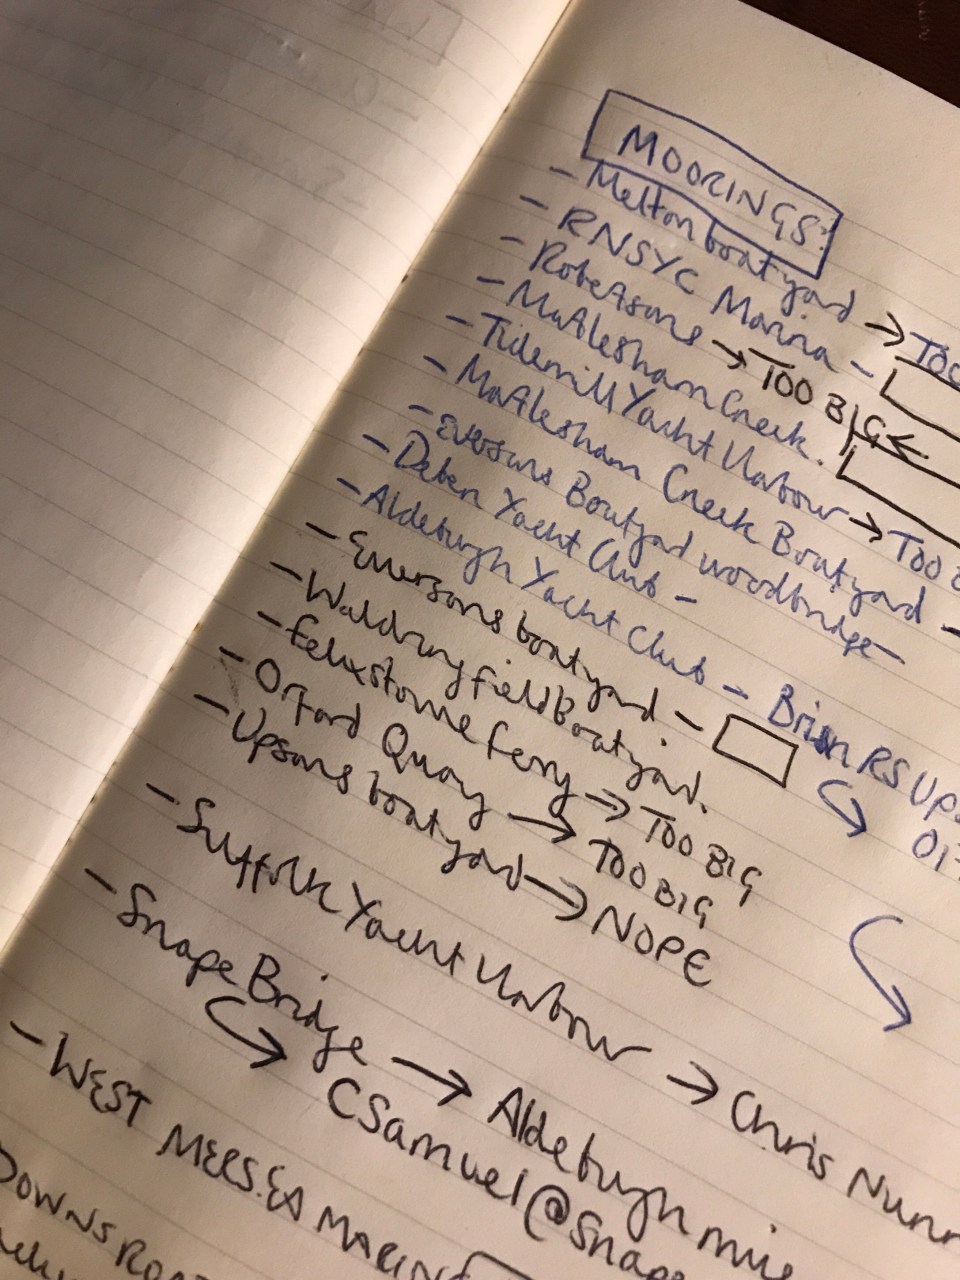 MOORINGS:
- Melton boatyard → TOO
- RNSYC Marina -
- Robertsons → TOO BIG ←
- Martlesham Creek.
- Tidemill Yacht Harbour → TOO B
- Martlesham Creek Boatyard -
- Eversons Boatyard woodbridge -
- Deben Yacht Club -
- Aldeburgh Yacht Club - Brian RS Ups
- Eversons boatyard -
- Waldringfield Boatyard.
- Felixstowe ferry → TOO BIG
- Orford Quay → TOO BIG
- Upsons boatyard → NOPE
- Suffolk Yacht Harbour → Chris Nunn
- Snape Bridge → Aldeburgh
CSamuel@Snape
- WEST MERSEA MARIN
DOWNS ROA